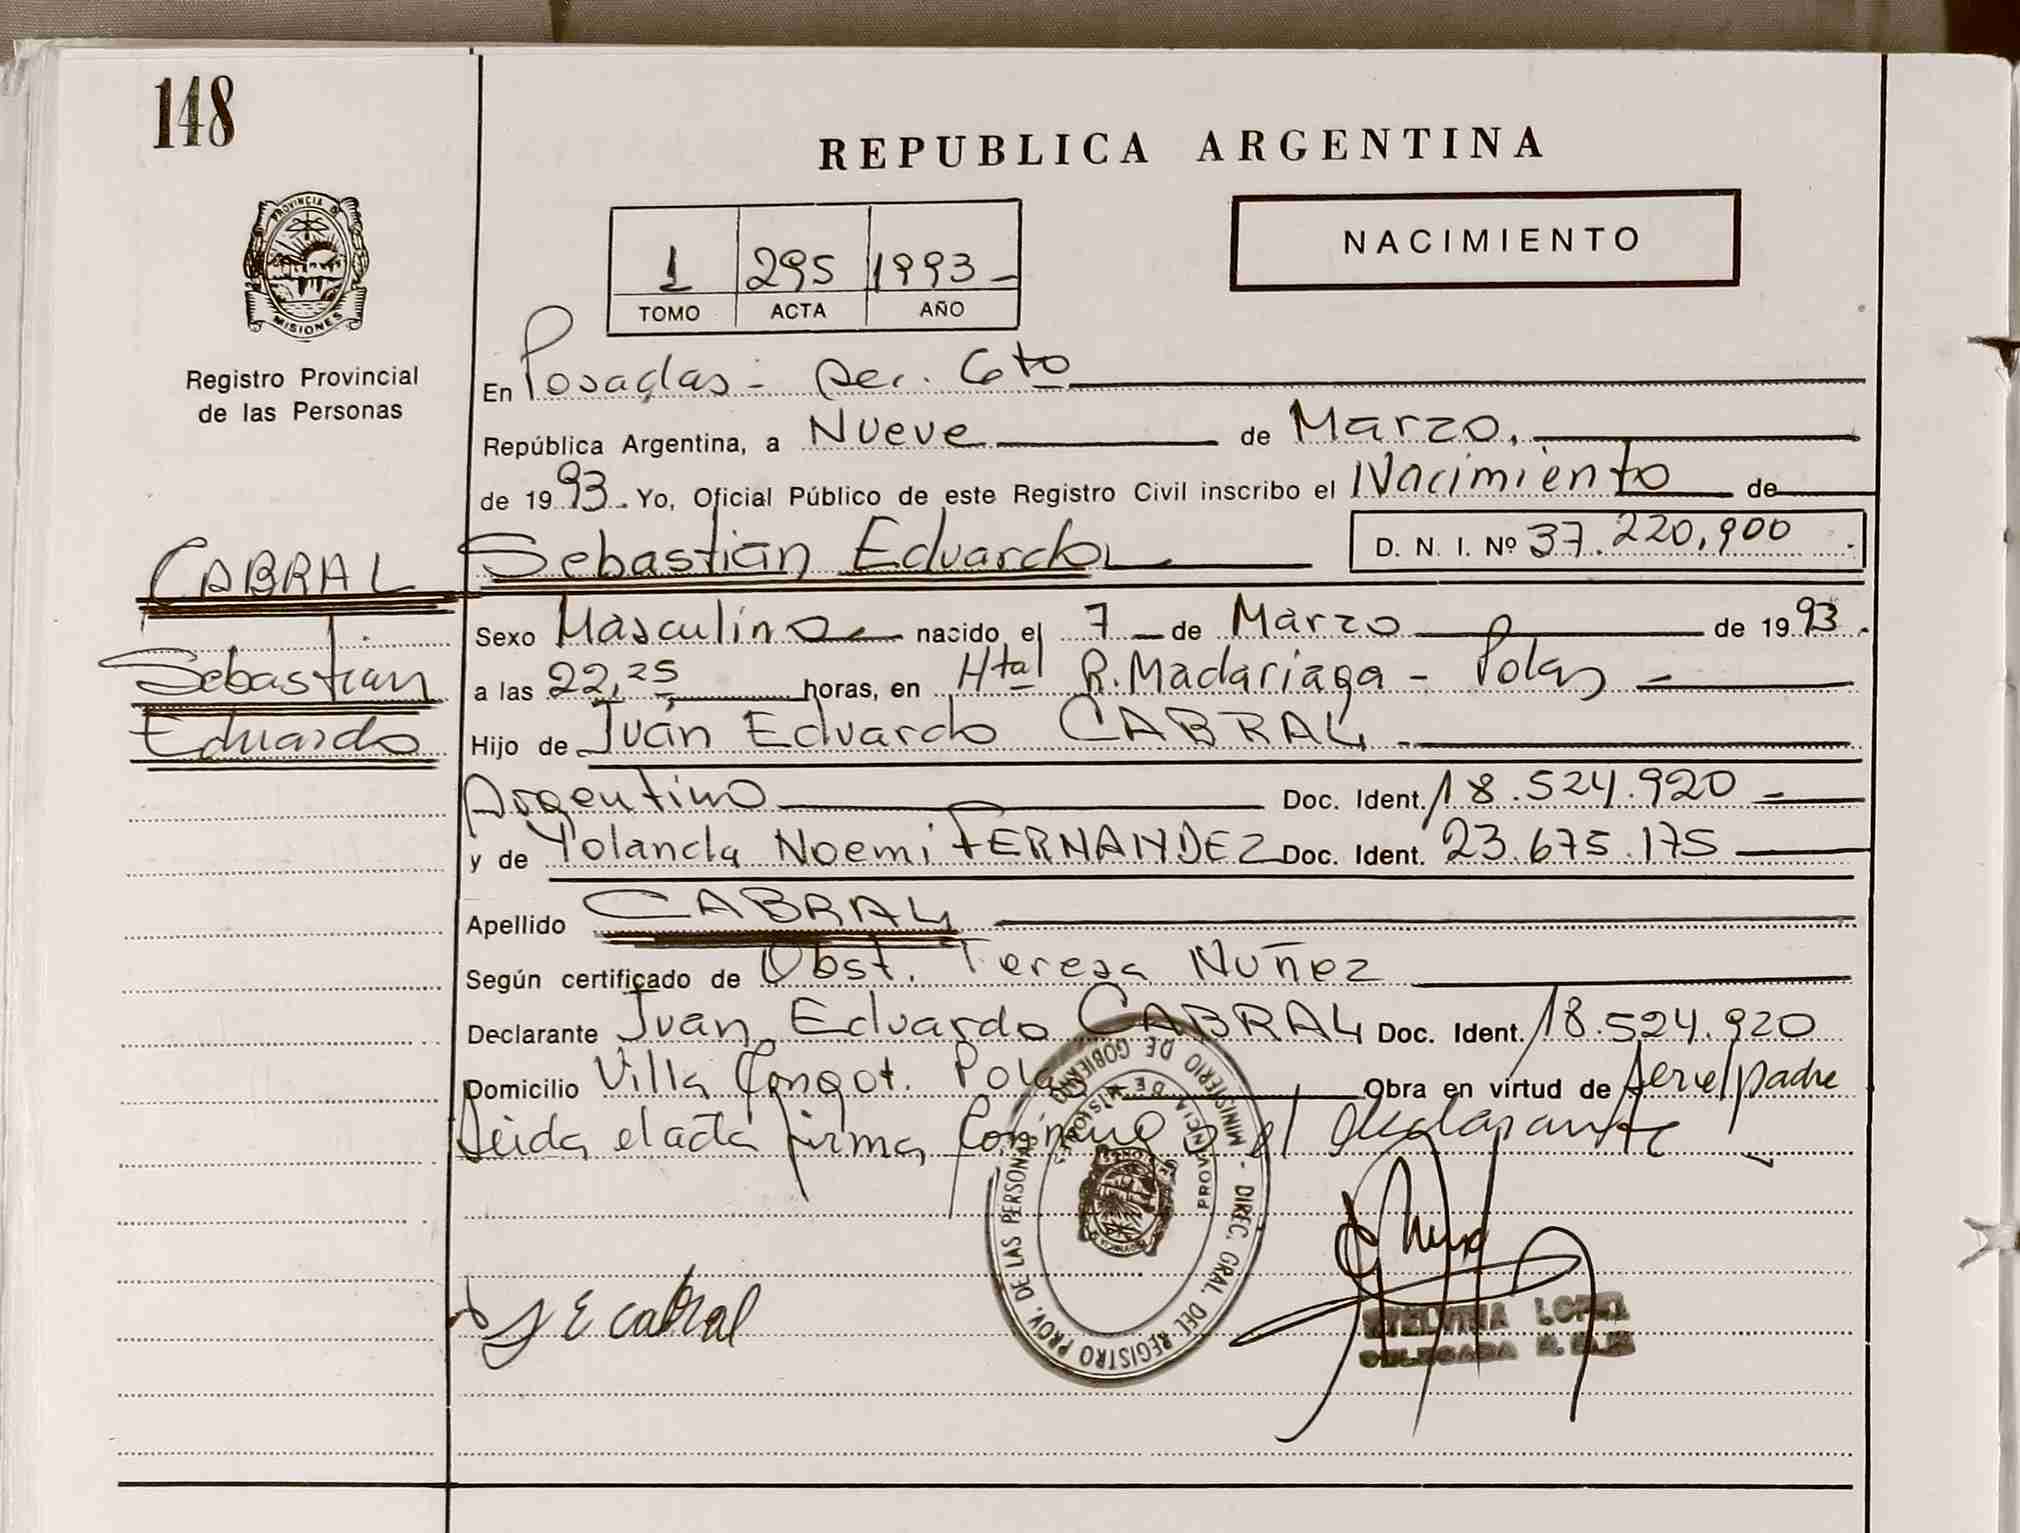 148
REPUBLICA ARGENTINA
NACIMIENTO
1 295 1993
TOMO ACTA AÑO
PROVINCIA DE
MISIONES
Registro Provincial
de las Personas
En Posadas - Sec. 6to
República Argentina, a Nueve de Marzo.
de 1993. Yo, Oficial Público de este Registro Civil inscribo el Nacimiento de
CABRAL Sebastián Eduardo D. N. I. Nº 37.220,900
Sebastian
Eduardo
Sexo Masculino nacido el 7 de Marzo de 1993.
a las 22,25 horas, en Htal R. Madariaga - Pdas
Hijo de Juán Eduardo CABRAL
Argentino Doc. Ident. 18.524.920
y de Yolanda Noemi FERNANDEZ Doc. Ident. 23.675.175
Apellido CABRAL
Según certificado de Obst. Teresa Nuñez
Declarante Juan Eduardo CABRAL Doc. Ident. 18.524.920
Domicilio Villa Obra en virtud de ser el padre
Leida el acta firma conmigo el declarante
MINISTERIO DE GOBIERNO - DIREC. GRAL. DEL REGISTRO PROV. DE LAS PERSONAS
PROVINCIA DE MISIONES
J E Cabral
LOPEZ
DELEGADA